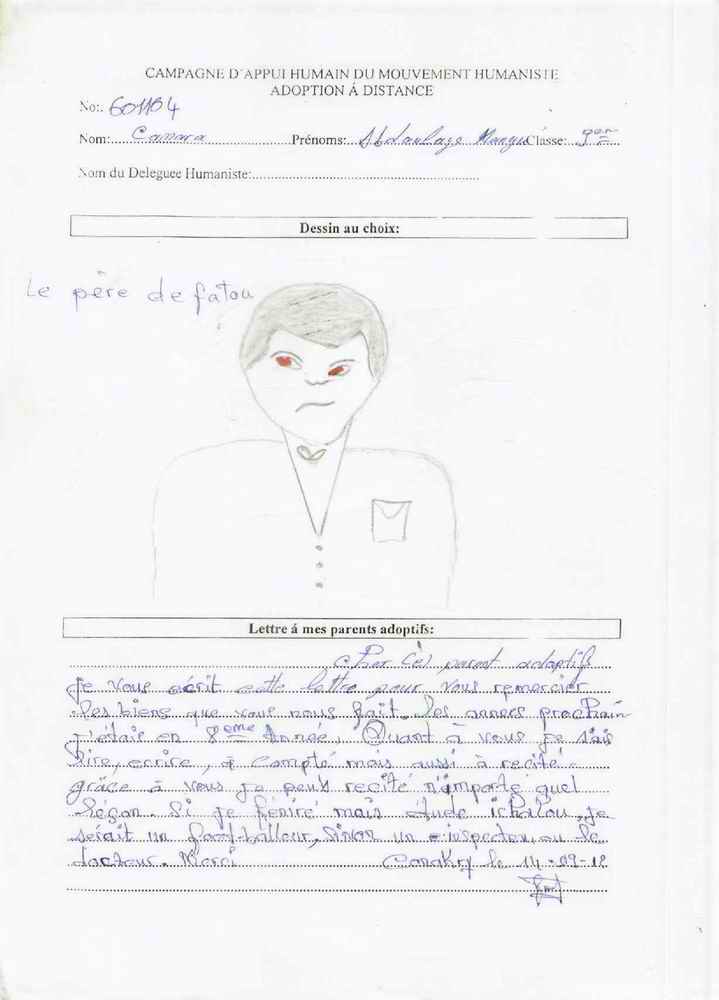 CAMPAGNE D'APPUI HUMAIN DU MOUVEMENT HUMANISTE
ADOPTION Á DISTANCE
No:. 601164
Nom: Camara Prénoms: Abdoulaye Classe: 9em
Nom du Deleguee Humaniste:
Dessin au choix:
Le père de fatou
Lettre á mes parents adoptifs:
cher (ès) parent adoptifs
Je vous écrit cette lettre pour vous remercier
les biens que vous nous fait. les années prochain
j'étais en 8eme Année, Quant à vous je sais
lire, ecrire, à compté mais aussi à recité
grâce à vous je peux recité n'importe quel
Léçon. Si je finiré mais étude ichalou, je
serait un foot-balleur, sinon un inspecteu, ou le
docteur. Merci Conakry le 14-09-12